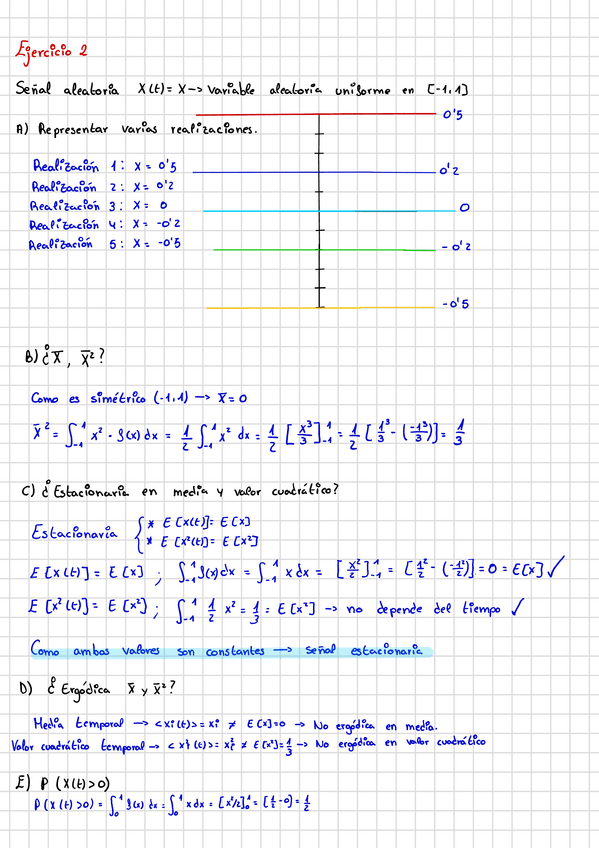 Ejercicio 2
Señal aleatoria X(t) = X → Variable aleatoria uniforme en [-1,1]
A) Representar varias realizaciones.
Realización 1: X = 0'5
Realización 2: X = 0'2
Realización 3: X = 0
Realización 4: X = -0'2
Realización 5: X = -0'5
0'5
0'2
0
-0'2
-0'5
B) ¿X̅, X̅²?
Como es simétrico (-1,1) → X̅ = 0
X̅² = ∫₋₁¹ x² · f(x) dx = 1/2 ∫₋₁¹ x² dx = 1/2 [x³/3]₋₁¹ = 1/2 [1³/3 - (-1³/3)] = 1/3
C) ¿Estacionaria en media y valor cuadrático?
Estacionaria { * E[X(t)] = E[X]
* E[X²(t)] = E[X²]
E[X(t)] = E[X] ; ∫₋₁¹ f(x) dx = ∫₋₁¹ x dx = [x²/2]₋₁¹ = [1²/2 - (-1²/2)] = 0 = E[X] ✓
E[X²(t)] = E[X²] ; ∫₋₁¹ 1/2 x² = 1/3 = E[X²] → no depende del tiempo ✓
Como ambas valores son constantes → señal estacionaria
D) ¿Ergódica X̅ y X̅²?
Media temporal → <xi(t)> = xi ≠ E[X] = 0 → No ergódica en media.
Valor cuadrático temporal → <xi²(t)> = xi² ≠ E[X²] = 1/3 → No ergódica en valor cuadrático
E) P (X(t)>0)
P(X(t)>0) = ∫₀¹ f(x) dx = ∫₀¹ x dx = [x²/2]₀¹ = [1/2 - 0] = 1/2